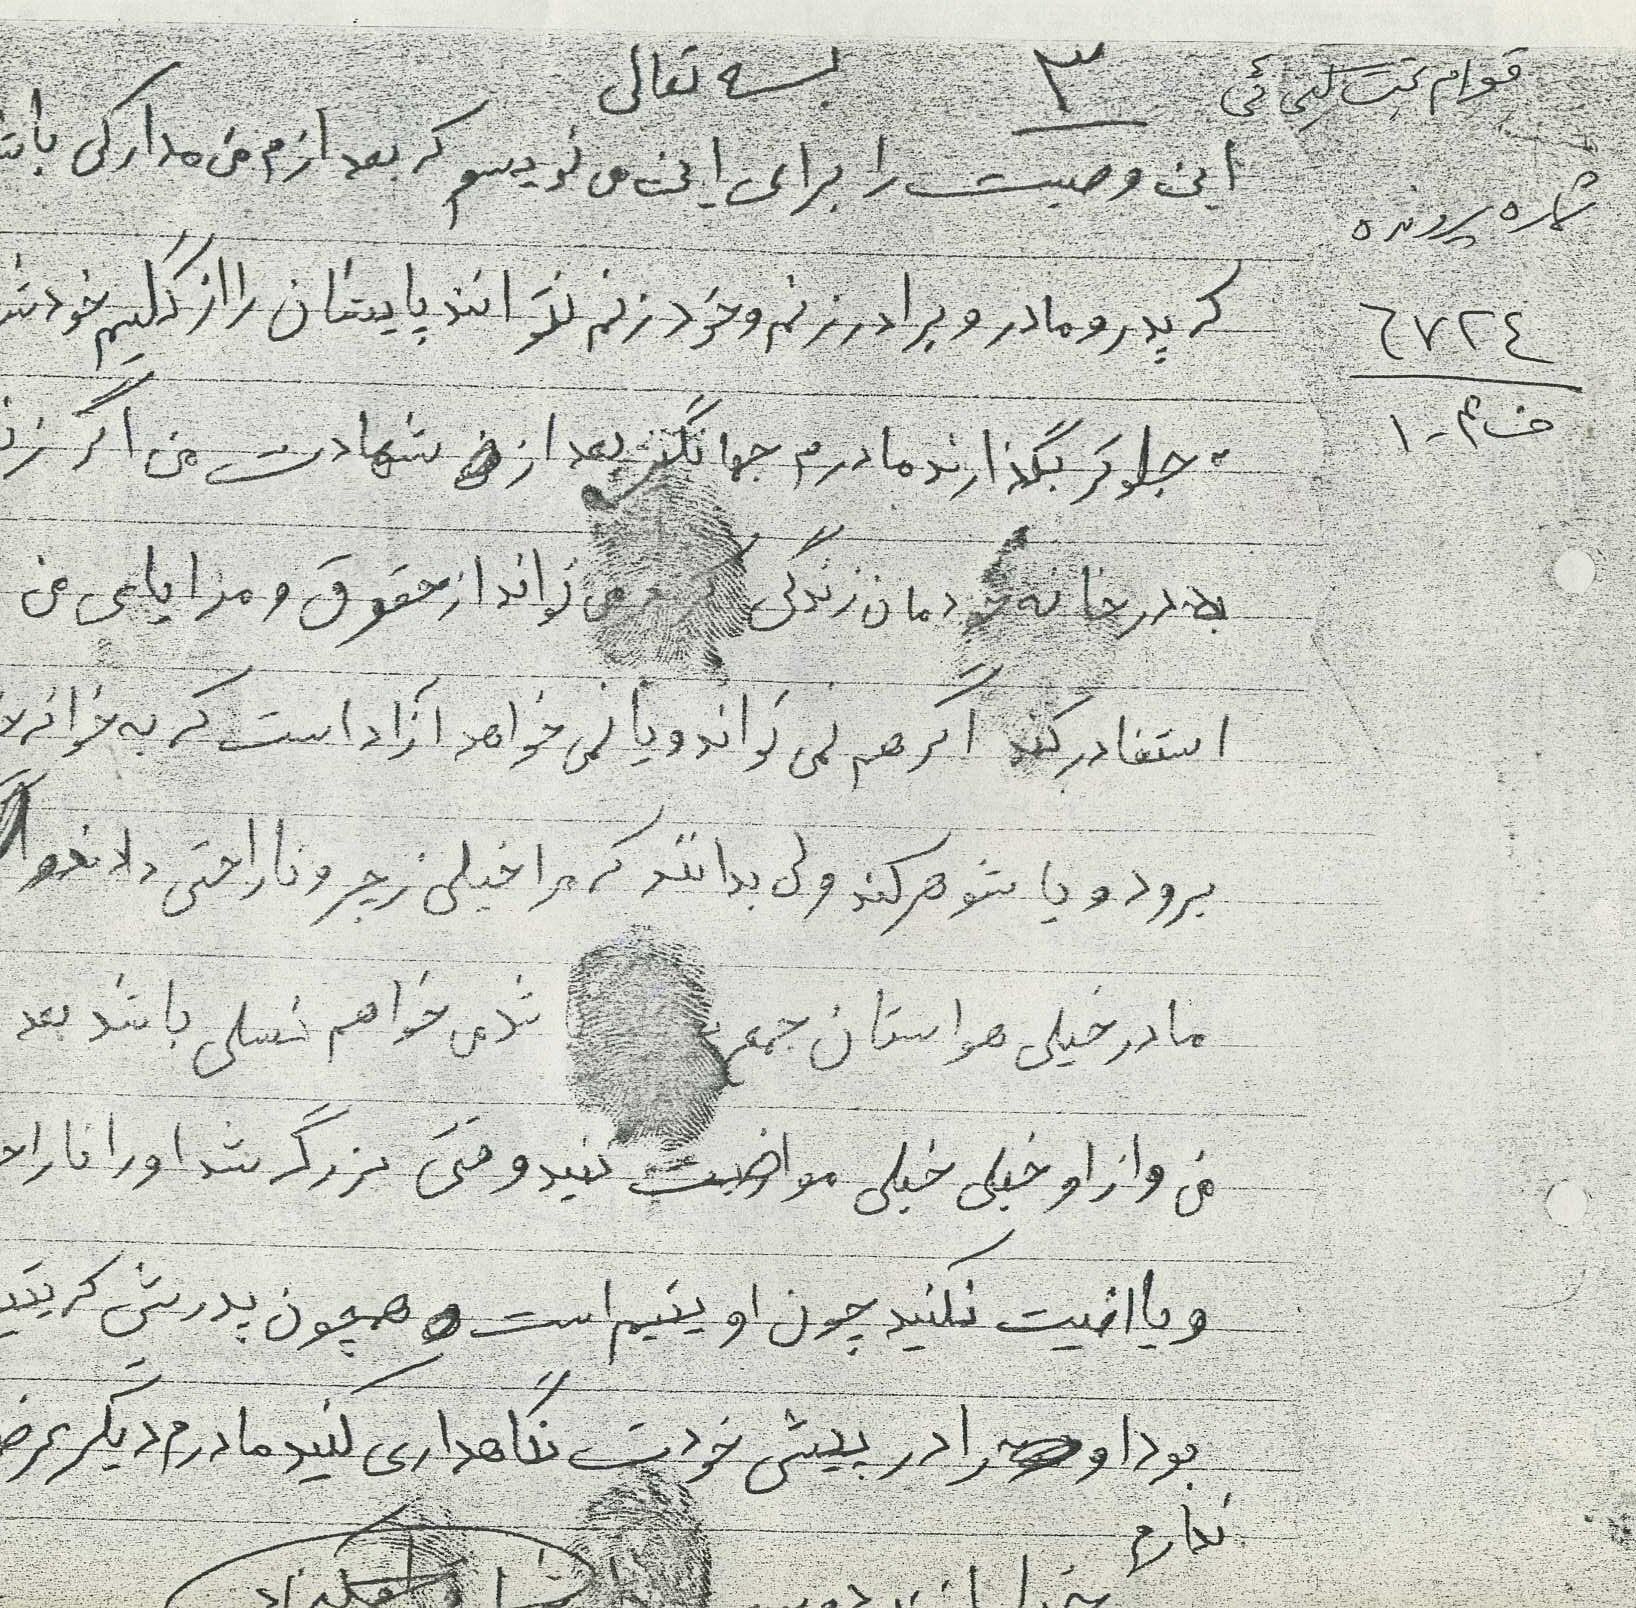 بسمه تعالی
۳
این وصیت را برای این می نویسم که بعد از من مدارکی باشد
که پدر و مادر و برادر زنم و خود زنم نتوانند پایشان را از گلیم خودشان
جلوتر بگذارند مادرم جهانگیز بعد از شهادت من اگر زنم
در خانه خودمان زندگی کند می تواند از حقوق و مزایای من
استفاده کند اگر هم نمی تواند و یا نمی خواهد آزاد است که به خوانه
برود و یا شوهر کند ولی بدانند که مرا خیلی زجر و ناراحتی دادند و
مادر خیلی هواستان جمع شد می خواهم نسلی باشد بعد
من و از او خیلی خیلی مواضبت کنید وقتی بزرگ شد او را
و یا اذیت نکنید چون او یتیم است همچون پدرش که یتیم
بود او را در پیش خودت نگاهداری کنید مادرم دیگر عرض
ندارم
شماره پرونده
٦٧٢٤
ف ۴ - ۱